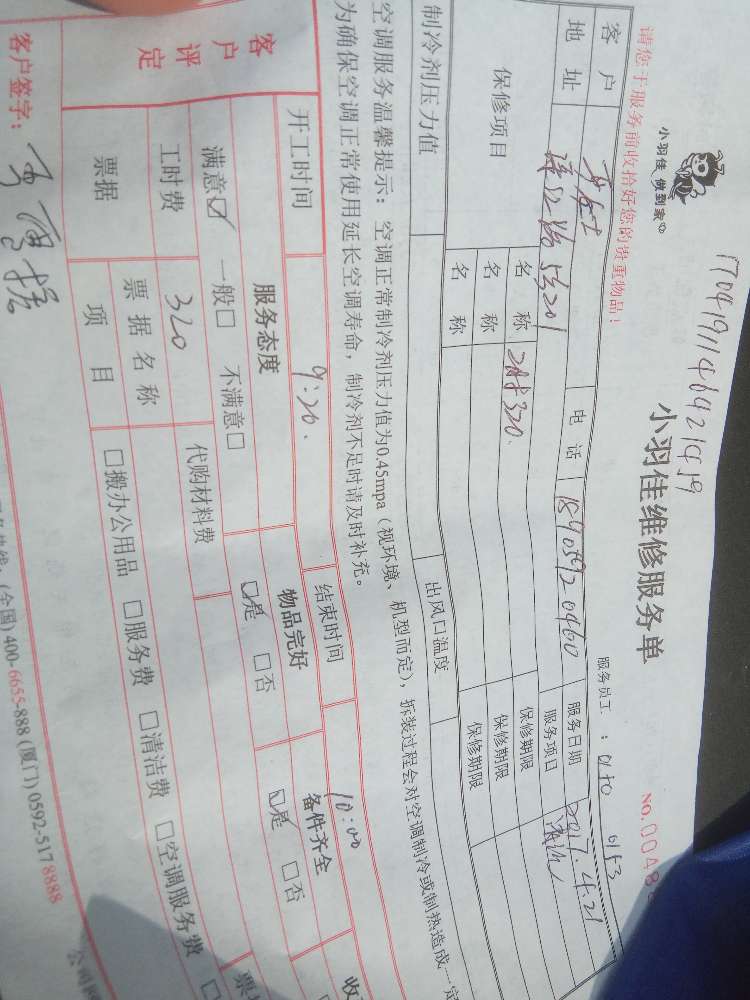 1704191140921419
小羽佳 做到家®
小羽佳维修服务单
请您于服务前收拾好您的贵重物品!
服务员工: 0140 0153
NO.0048
客户
电话 18905920460
服务日期 2017.4.21
地址 53201
服务项目
保修项目 名称 320. 保修期限
名称 保修期限
名称 保修期限
制冷剂压力值 出风口温度
空调服务温馨提示: 空调正常制冷剂压力值为0.45mpa (视环境、机型而定), 拆装过程会对空调制冷或制热造成一定
为确保空调正常使用延长空调寿命, 制冷剂不足时请及时补充。
开工时间 9:20. 结束时间 10:00 收
客户评定 服务态度 物品完好 备件齐全
满意☑ 一般□ 不满意□ ☑是 □否 ☑是 □否
工时费 320 代购材料费
票据 票据名称
项目 □搬办公用品 □服务费 □清洁费 □空调服务费
客户签字:
(全国)400-6655-888 (厦门)0592-5178888
公司网